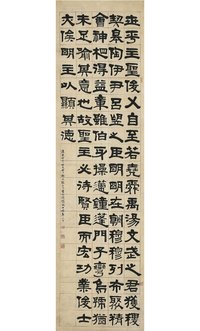 世平主聖俊乂自至若堯舜禹湯文武之君獲稷
契皋陶伊尹呂望之臣明明在朝穆穆列布聚精
會神相得益章雖伯牙操遞鐘蓬門子彎烏號猶
未足喻其意也故聖主必待賢臣而宏功業俊士
亦俟明主以顯其德